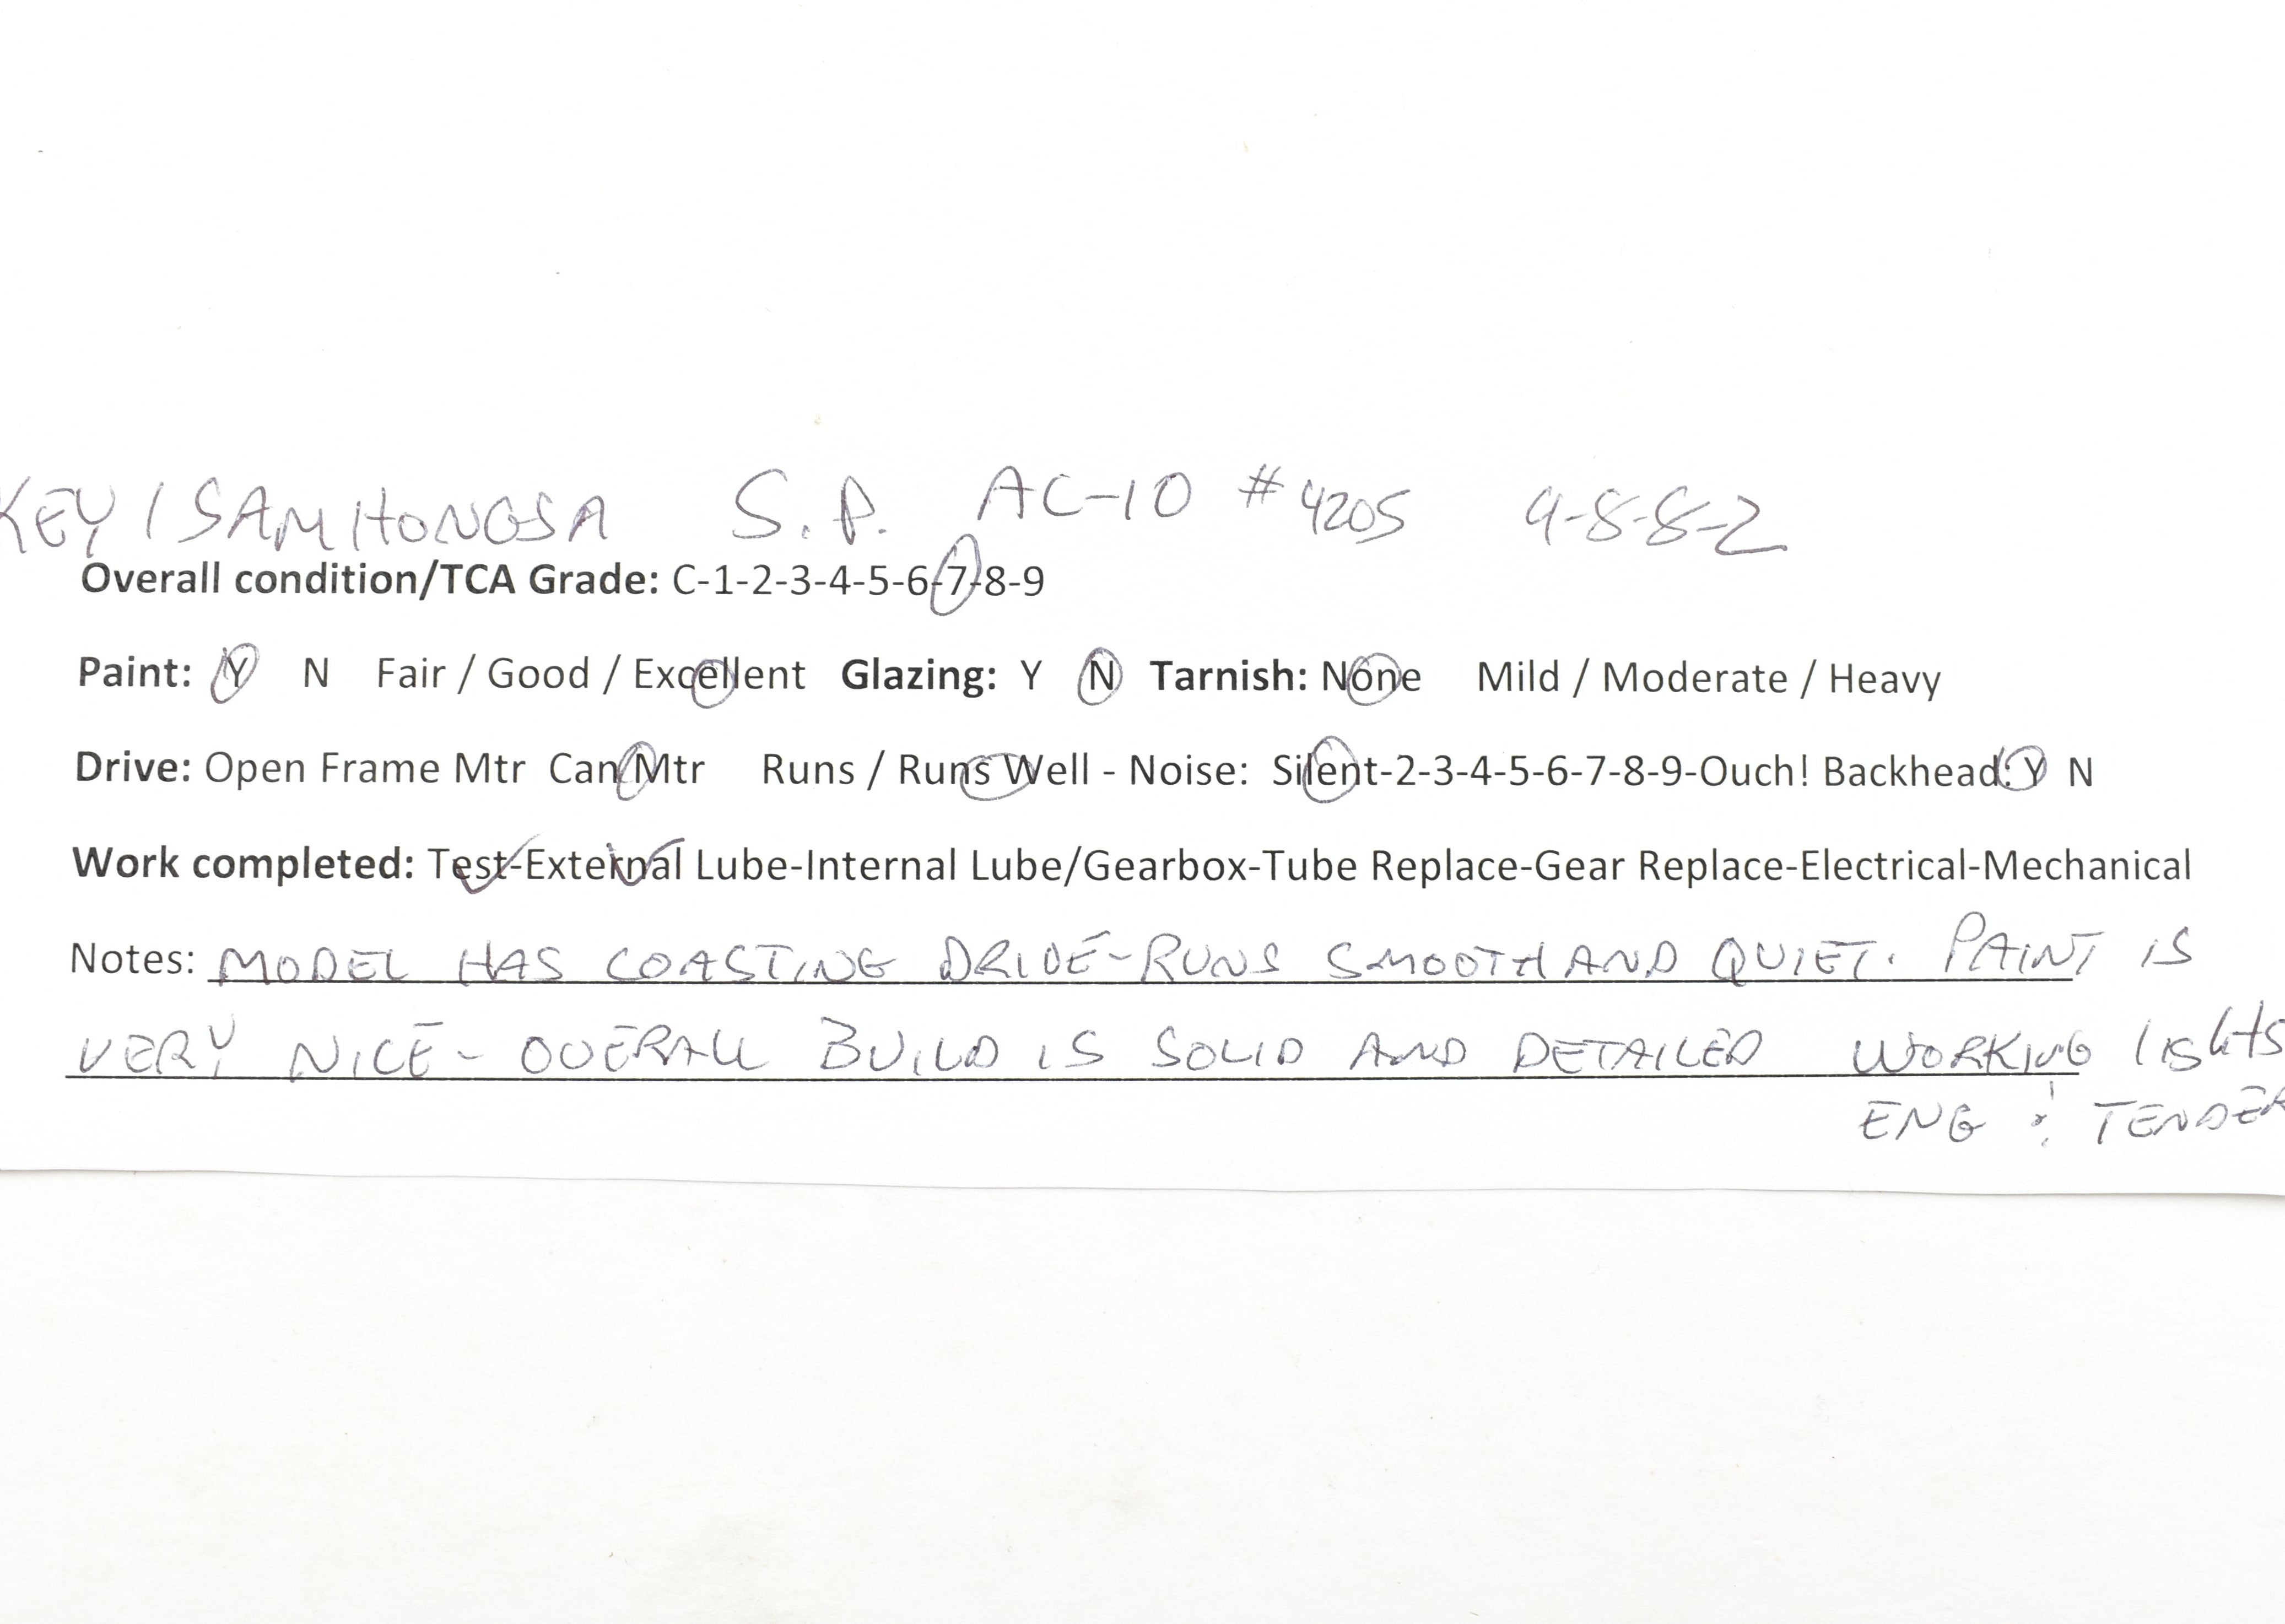 KEY / SAMHONGSA S.P. AC-10 #4205 4-8-8-2
Overall condition/TCA Grade: C-1-2-3-4-5-6-7-8-9
Paint: Y N Fair / Good / Excellent Glazing: Y N Tarnish: None Mild / Moderate / Heavy
Drive: Open Frame Mtr Can Mtr Runs / Runs Well - Noise: Silent-2-3-4-5-6-7-8-9-Ouch! Backhead: Y N
Work completed: Test-External Lube-Internal Lube/Gearbox-Tube Replace-Gear Replace-Electrical-Mechanical
Notes: MODEL HAS COASTING DRIVE-RUNS SMOOTH AND QUIET. PAINT IS
VERY NICE - OVERALL BUILD IS SOLID AND DETAILED WORKING lights
ENG & TENDER